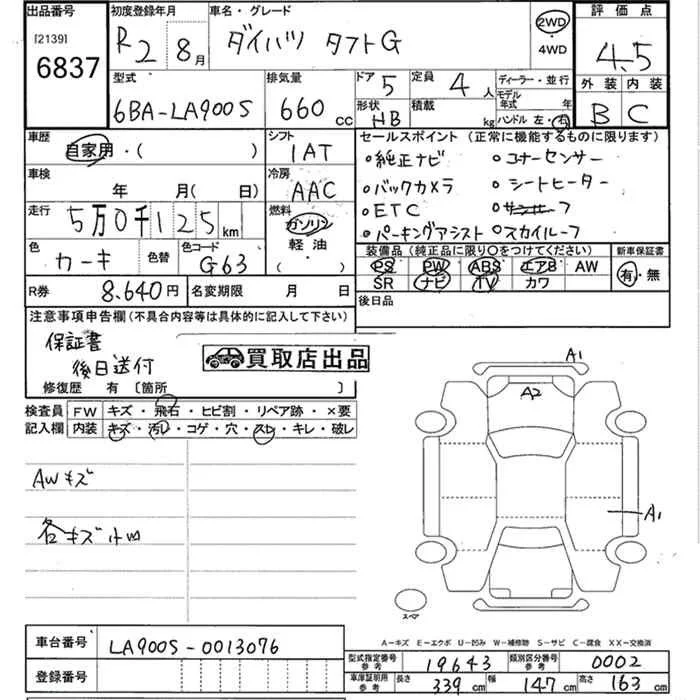 出品番号 初度登録年月 車名・グレード 評価点
[2139] 6837 R2 8月 ダイハツ タフトG 2WD・4WD 4.5
型式 排気量 ドア 定員 ディーラー・並行 外装 内装
6BA-LA900S 660cc 5 4人 モデル年式 年 B C
形状 HB 積載 kg ハンドル 左・右
車歴 シフト セールスポイント(正常に機能するものに限ります)
自家用・( ) 1AT ●純正ナビ ●コーナーセンサー
車検 年 月(日) 冷房 AAC ●バックカメラ ●シートヒーター
走行 5万0千125km 燃料 ガソリン・軽油・( ) ●ETC
●パーキングアシスト ●スカイルーフ
色 カーキ 色替 色コード G63 装備品(純正品に限り○をつけてください) 新車保証書
PS PW ABS エアB AW 有・無
SR ナビ TV カワ
R券 8.640円 名変期限 月 日 後日品
注意事項申告欄(不具合内容等は具体的に記入して下さい)
保証書
後日送付
買取店出品
修復歴 有〔箇所 〕
検査員記入欄 FW キズ・飛石・ヒビ割・リペア跡・×要
内装 キズ・汚レ・コゲ・穴・スレ・キレ・破レ
A1
A2
AWキズ
A1
各キズ小凹
スペア
A-キズ E-エクボ U-凹み W-補修物 S-サビ C-腐食 XX-交換済
車台番号 LA900S-0013076
型式指定番号 参考 19643 類別区分番号 参考 0002
登録番号
車庫証明用 参考 長さ 339cm 幅 147cm 高さ 163cm